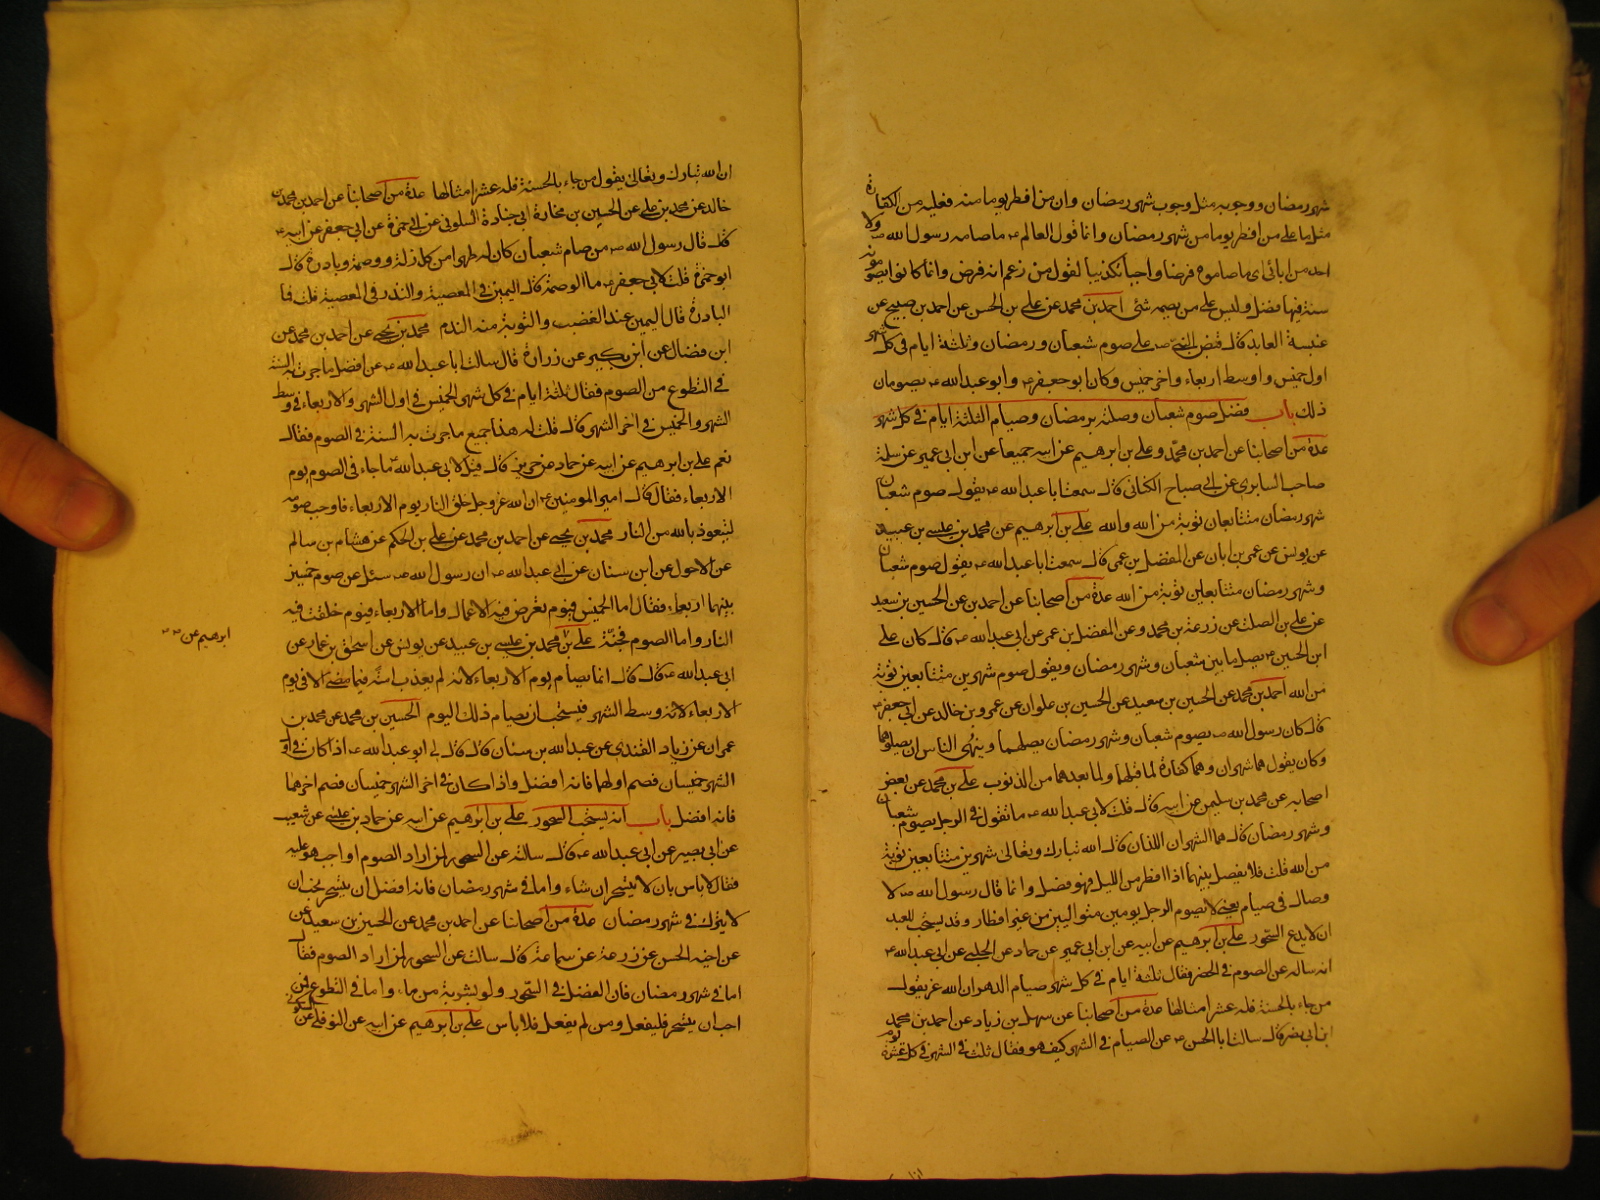 شهر رمضان ووجوبه مثل وجوب شهر رمضان وان من افطر يوما منه فعليه من الكفارة
مثل ما على من افطر يوما من شهر رمضان وانما قول العالم ما صامه رسول الله ص ولا
احد من ابائى اى ما صاموه فرضا واجبا تكذيبا لقول من زعم انه فرض وانما كانوا يصومونه
سنة فيها فضل وليس على من لم يصمه شئ احمد بن محمد عن على بن الحسن عن احمد بن صبيح عن
عنبسة العابد قال قبض النبى ص على صوم شعبان ورمضان وثلثة ايام فى كل شهر
اول خميس واوسط اربعاء واخر خميس وكان ابو جعفر وابو عبد الله يصومان
ذلك باب فضل صوم شعبان وصلته برمضان وصيام الثلثة ايام فى كل شهر
عدة من اصحابنا عن احمد بن محمد وعلى بن ابرهيم عن ابيه جميعا عن ابن ابى عمير عن سلمة
صاحب السابرى عن ابى صباح الكنانى قال سمعت ابا عبد الله يقول صوم شعبان
شهر رمضان متتابعان توبة من الله والله على بن ابرهيم عن محمد بن عيسى بن عبيد
عن يونس عن عمرو بن ابان عن المفضل بن عمر قال سمعت ابا عبد الله يقول صوم شعبان
وشهر رمضان متتابعين توبة من الله عدة من اصحابنا عن احمد بن عن الحسين بن سعيد
عن على بن الصلت عن زرعة بن محمد وعن المفضل بن عمر عن ابى عبد الله قال كان على
ابن الحسين يصل ما بين شعبان وشهر رمضان ويقول صوم شهرين متتابعين توبة
من الله احمد بن محمد عن الحسين بن سعيد عن الحسين بن علوان عن عمرو بن خالد عن ابى جعفر
قال كان رسول الله ص يصوم شعبان وشهر رمضان يصلهما وينهى الناس ان يصلوهما
وكان يقول هما شهران وهما كفارة لما قبلهما ولما بعدهما من الذنوب على بن محمد عن بعض
اصحابه عن محمد بن سليمن عن ابيه قال قلت لابى عبد الله ما تقول فى الرجل يصوم شعبان
وشهر رمضان قال هما الشهران اللذان قال الله تبارك وتعالى شهرين متتابعين توبة
من الله قلت فلا يفصل بينهما اذا افطر من الليل فهو فصل وانما قال رسول الله ص لا
وصال فى صيام يعنى لا يصوم الرجل يومين متواليين من غير افطار وقد يستحب للعبد
ان لا يدع السحور على بن ابرهيم عن ابيه عن ابن ابى عمير عن حماد عن الحلبى عن ابى عبد الله
انه ساله عن الصوم فى الحضر فقال ثلثة ايام فى كل شهر صيام الدهر ان الله عز يقول
من جاء بالحسنة فله عشر امثالها عدة من اصحابنا عن سهل بن زياد عن احمد بن محمد
ابن ابى نصر قال سالت ابا الحسن عن الصيام فى الشهر كيف هو فقال ثلث فى الشهر فى كل عشرة يوم
ان الله تبارك وتعالى يقول من جاء بالحسنة فله عشر امثالها عدة من اصحابنا عن احمد بن محمد بن
خالد عن محمد بن على عن الحسين بن مخارق ابى جنادة السلولى عن ابى حمزة عن ابى جعفر عن ابيه
قال قال رسول الله ص من صام شعبان كان له طهرا من كل زلة ووصمة وبادرة قال
ابو حمزة قلت لابى جعفر ما الوصمة قال اليمين فى المعصية والنذر فى المعصية قلت فما
البادرة قال اليمين عند الغضب والتوبة منه الندم محمد بن يحيى عن احمد بن محمد عن
ابن فضال عن ابن بكير عن زرارة قال سالت ابا عبد الله عن افضل ما جرت به السنة
فى التطوع من الصوم فقال ثلثة ايام فى كل شهر الخميس فى اول الشهر والاربعاء فى وسط
الشهر والخميس فى اخر الشهر قال قلت له هذا جميع ما جرت به السنة فى الصوم فقال
نعم على بن ابرهيم عن ابيه عن حماد عن حريز قال قيل لابى عبد الله ما جاء فى الصوم يوم
الاربعاء فقال قال امير المومنين ان الله عز وجل خلق النار يوم الاربعاء فاوجب صومه
ليتعوذ بالله من النار محمد بن يحيى عن احمد بن محمد عن على بن الحكم عن هشام بن سالم
عن الاحول عن ابن سنان عن ابى عبد الله ان رسول الله ص سئل عن صوم خميسين
بينهما اربعاء فقال اما الخميس فيوم تعرض فيه الاعمال واما الاربعاء فيوم خلقت فيه
النار واما الصوم فجنة على بن محمد بن عيسى بن عبيد عن يونس عن اسحق بن عمار عن
ابرهيم عن
ابى عبد الله قال قال انما يصام يوم الاربعاء لانه لم يعذب امة فيما مضى الا فى يوم
الاربعاء لانه وسط الشهر فيستحب ان يصام ذلك اليوم الحسين بن محمد عن محمد بن
عمران عن زياد القندى عن عبد الله بن سنان قال قال لى ابو عبد الله اذا كان فى اول
الشهر خميسان فصم اولهما فانه افضل واذا كان فى اخر الشهر خميسان فصم اخرهما
فانه افضل باب انه يستحب السحور على بن ابرهيم عن ابيه عن حماد بن عيسى عن شعيب
عن ابى بصير عن ابى عبد الله قال سالته عن السحور لمن اراد الصوم اواجب هو عليه
فقال لا باس بان لا يتسحر ان شاء واما فى شهر رمضان فانه افضل ان يتسحر نحب ان
لا يترك فى شهر رمضان عدة من اصحابنا عن احمد بن محمد عن الحسين بن سعيد عن
عن اخيه الحسن عن زرعة عن سماعة قال سالت عن السحور لمن اراد الصوم فقال
اما فى شهر رمضان فان الفضل فى السحور ولو بشربة من ماء واما فى التطوع فمن
احب ان يتسحر فليفعل ومن لم يفعل فلا باس على بن ابرهيم عن ابيه عن النوفلى عن السكونى